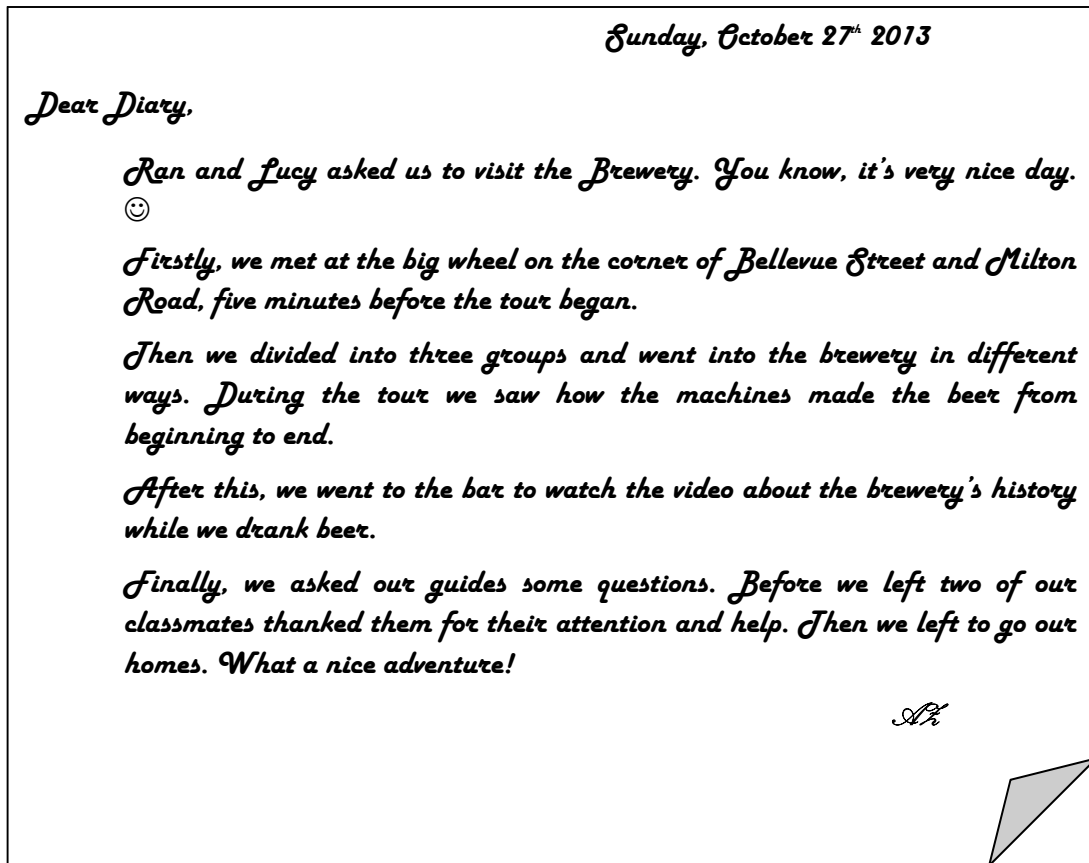 Sunday, October 27th 2013
Dear Diary,
Ran and Lucy asked us to visit the Brewery. You know, it's very nice day.
☺
Firstly, we met at the big wheel on the corner of Bellevue Street and Milton
Road, five minutes before the tour began.
Then we divided into three groups and went into the brewery in different
ways. During the tour we saw how the machines made the beer from
beginning to end.
After this, we went to the bar to watch the video about the brewery's history
while we drank beer.
Finally, we asked our guides some questions. Before we left two of our
classmates thanked them for their attention and help. Then we left to go our
homes. What a nice adventure!
AZ